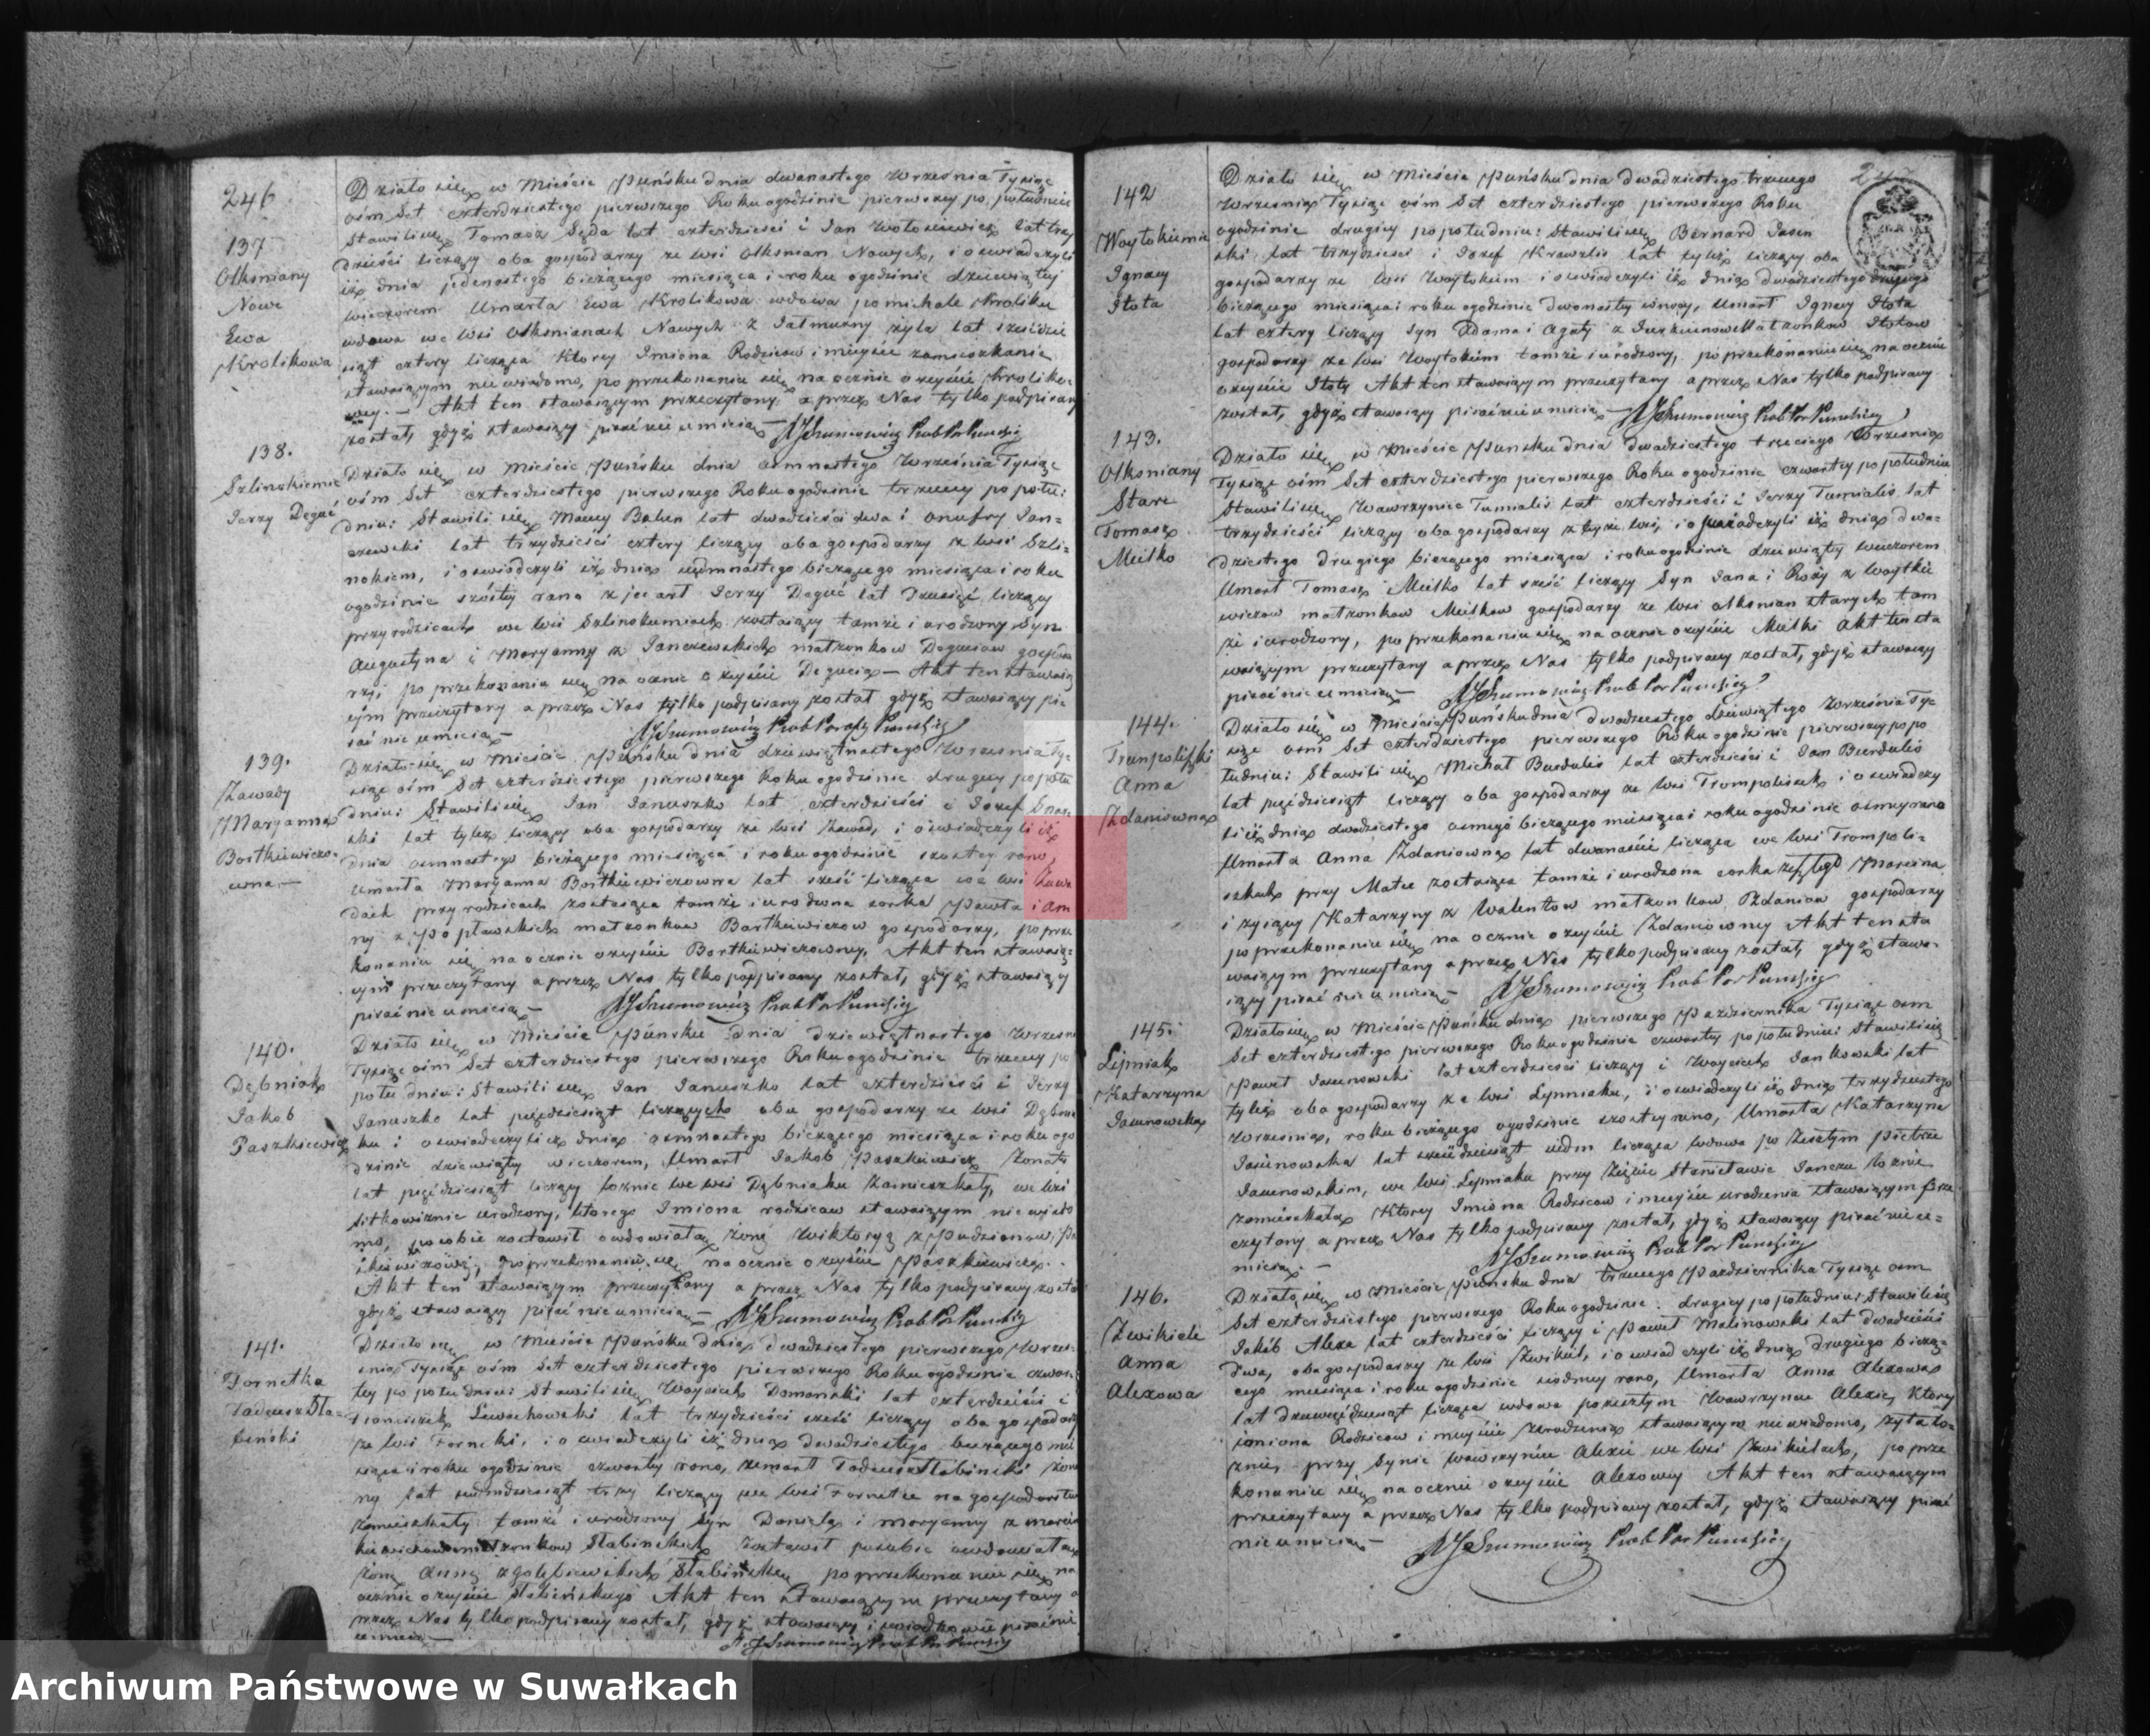 246
137
Olksniany
Nowe
Ewa
Krolikowa
Działo się w Mieście Puńsku dnia dwunastego Września Tysiąc
ośm Set czterdziestego pierwszego Roku ogodzinie pierwszey po południu
Stawili się Tomasz Sęda lat czterdzieści i Jan Wołosewicz lat trzy
dzieści liczący oba gospodarzy ze wsi Olksnian Nowych, i oswiadczyli
iż dnia jedenastego bieżącego miesiąca i roku ogodzinie dziewiątey
wieczorem Umarła Ewa Krolikowa wdowa po Michale Kroliku
wdowa we wsi Olksnianach Nowych z Jałmużny żyła lat sześćdzie
siąt cztery licząca Ktorey Imiona Rodziców i mieysce zamieszkania
stawaiącym niewiadome, po przekonaniu się na ocznie o zeyściu Kroliko-
wey. — Akt ten stawaiącym przeczytany a przez Nas tylko podpisany
został, gdyż stawaiący pisać nie umieią —
138.
Szlinokiemie
Jerzy Deguć
Działo się w Mieście Puńsku dnia osmnastego Września Tysiąc
ośm Set czterdziestego pierwszego Roku ogodzinie trzeciey po połu:
dniu: Stawili się Maciey Balun lat dwadzieścia dwa i Onufry Jan=
czewski lat trzydzieści cztery liczący oba gospodarzy z wsi Szli=
nokiem, i oswiadczyli iż dnia siedmnastego bieżącego miesiąca i roku
ogodzinie szóstey rano Jerzy Deguć lat liczący
przy rodzicach we wsi Szlinokiemiach zostaiący tamże i urodzony Syn
Augustyna i Maryanny z Janczewskich małżonkow Deguciow gospoda
rzy; po przekonaniu się na ocznie o zeyściu Degucia — Akt ten stawaią
cym przeczytany a przez Nas tylko podpisany został gdyż stawaiący pi=
sać nie umieią —
139.
Zawady
Maryanna
Bortkiewiczo-
wna —
Działo się w Mieście Puńsku dnia dziewiętnastego Września Ty-
siąc ośm Set czterdziestego pierwszego Roku ogodzinie drugiey popołu
dniu: Stawili się Jan Januszko lat czterdzieści i Józef
ski lat tyleż liczący oba gospodarzy ze wsi Zawad, i oświadczyli iż
dnia osmnastego bieżącego miesiąca i roku ogodzinie szostey rano,
Umarła Maryanna Bortkiewiczowna lat sześć licząca we wsi Zawa
dach przy rodzicach zostaiąca tamże i urodzona corka Pawła i An
ny z Popławskich małżonkow Bortkiewiczow gospodarzy, po prze
konaniu się na ocznie o zeyściu Bortkiewiczowny. Akt ten stawaią=
cym przeczytany a przez Nas tylko podpisany został, gdyż stawaiący
pisać nie umieią —
140.
Dębniak
Jakob
Paszkiewicz
Działo się w Mieście Puńsku dnia dziewiętnastego Wrzesni
Tysiąc ośm Set czterdziestego pierwszego Roku ogodzinie trzeciey po
połu dniu: Stawili się Jan Januszko lat czterdzieści i Jerzy
Januszko lat pięćdziesiąt liczących oba gospodarzy ze wsi Dębnia
ku i oświadczyli iż dnia osmnastego bieżącego miesiąca i roku ogo
dzinie dziewiątey wieczorem, Umarł Jakob Paszkiewicz Żonaty
lat pięćdziesiąt liczący we wsi Dębniaku Zamieszkały, we wsi
Sitkowiznie urodzony, ktorego Imiona rodzicow stawaiącym niewiado
me, po sobie zostawił owdowiałą żonę Wiktoryą z
po przekonaniu się na ocznie o zeyściu Paszkiewicza.
Akt ten stawaiącym przeczytany a przez Nas tylko podpisany zosta
gdyż stawaiący pisać nie umieią —
141.
Fornetka
Tadeusz Sła-
biński
Działo się w Mieście Puńsku dnia dwadziestego pierwszego Wrzes-
nia Tysiąc ośm Set czterdziestego pierwszego Roku ogodzinie czwar-
tey po południu: Stawili się Woyciech Domański lat czterdzieści i
Franciszek Lewochowski lat trzydzieści sześć liczący oba gospodarzy
ze wsi Fornetki, i oswiadczyli iż dnia dwadziestego bieżącego mie
siąca i roku ogodzinie czwartey rano, Umarł Tadeusz Słabiński Żona
ty lat siedmdziesiąt trzy liczący we wsi Fornetce na gospodarstw
Zamieszkały tamże i urodzony Syn Daniela i Maryanny z
małżonkow Słabińskich Zostawił po sobie owdowiałą
żonę Annę z Gołębiewskich Słabińską, po przekonaniu się na
ocznie o zeyściu Słabińskiego Akt ten Stawaiącym przeczytany a
przez Nas tylko podpisany został, gdyż stawaiący i swiadkowie pisać nie
umieią —
142
Woytokiemie
Ignacy
Stota
Działo się w Mieście Puńsku dnia dwadziestego trzeciego
Września Tysiąc ośm Set czterdziestego pierwszego Roku
ogodzinie drugiey popołudniu: Stawili się Bernard Jasin
ski lat trzydzieści i Jozef Krawzlis lat tyleż liczący oba
gospodarzy ze wsi Woytokiem i oswiadczyli iż dnia dwadziestego drugiego
bieżącego miesiąca i roku ogodzinie dwunastey wnocy, Umarł Ignacy Stota
lat cztery liczący Syn Adama i Agaty z Małżonkow Stotow
gospodarzy ze wsi Woytokiem tamże i urodzony, po przekonaniu się na ocznie
o zeyściu Stoty Akt ten stawaiącym przeczytany a przez Nas tylko podpisany
został, gdyż stawaiący pisać nie umieią —
143.
Olksniany
Stare
Tomasz
Miełko
Działo się w Mieście Puńsku dnia dwadziestego trzeciego Września
Tysiąc ośm Set czterdziestego pierwszego Roku ogodzinie czwartey popołudniu
Stawili się Wawrzyniec Tumialis lat czterdzieści i Jerzy Tumialis lat
trzydzieści liczący oba gospodarzy z teyże wsi, i oświadczyli iż dnia dwa-
dziestego drugiego bieżącego miesiąca i roku ogodzinie dziewiątey wieczorem
Umarł Tomasz Miełko lat sześć liczący Syn Jana i Rozy z Woytkie
wiczow małzonkow Miełkow gospodarzy ze wsi Olksnian starych tam
że i urodzony, po przekonaniu się na ocznie o zeyściu Miełki Akt ten sta
waiącym przeczytany a przez Nas tylko podpisany został, gdyż stawaiący
pisać nie umieią —
144.
Trumpoliszki
Anna
Zdaniowna
Działo się w Mieście Puńsku dnia dwadziestego dziewiątego Września Ty-
siąc ośm Set czterdziestego pierwszego Roku ogodzinie pierwszey popo
łudniu: Stawili się Michał Burdulis lat czterdzieści i Jan Burdulis
lat pięćdziesiąt liczący oba gospodarzy ze wsi Trompolisek i oswiadczy
li iż dnia dwadziestego osmego bieżącego miesiąca i roku ogodzinie osmey rano
Umarła Anna Zdaniowna lat dwanaście licząca we wsi Trompoli-
szkach przy Matce zostaiąca tamże i urodzona corka zeszłego Marcina
i zyiącey Katarzyny z Walentow małżonkow Zdaniow gospodarzy
po przekonaniu się na ocznie o zeyściu Zdaniowney Akt ten sta
waiącym przeczytany a przez Nas tylko podpisany został, gdyż stawa-
iący pisać nie umieią —
145.
Lipniak
Katarzyna
Jasunowska
Działo się w Mieście Puńsku dnia pierwszego Pazdziernika Tysiąc osm
Set czterdziestego pierwszego Roku ogodzinie czwartey popołudniu: Stawili się
Paweł Jasunowski lat czterdzieści liczący i Woyciech Jankowski lat
tyleż oba gospodarzy ze wsi Lypniaku, i oświadczyli iż dnia trzydziestego
Września, roku bieżącego ogodzinie szostey rano, Umarła Katarzyna
Jasunowska lat sześćdziesiąt siedm licząca wdowa po Zeszłym Pietrze
Jasunowskim, we wsi Lypniaku przy Zięciu Stanisławie
zamieszkała Ktorey Imiona Rodzicow i mieysce urodzenia stawaiącym prze
czytany a przez Nas tylko podpisany został, gdyż stawaiący pisać nie u=
mieią. —
146.
Zwikiele
Anna
Alexowa
Działo się w Mieście Puńsku dnia trzeciego Pazdziernika Tysiąc osm
Set czterdziestego pierwszego Roku ogodzinie drugiey popołudniu: Stawili się
Jakób Alexa lat czterdzieści liczący i Paweł Malinowski lat dwadzieści
dwa, oba gospodarzy ze wsi Zwikiel, i oswiadczyli iż dnia drugiego bieżą-
cego miesiąca i roku ogodzinie siodmey rano, Umarła Anna Alexowa
lat dziewięćdziesiąt licząca wdowa po zeszłym Wawrzyńcu Alexie, Ktorey
imiona Rodzicow i mieysce Urodzenia stawaiącym niewiadome, żyła
przy Synie Wawrzyńcu Alexie we wsi Zwikielach, po prze
konaniu się na ocznie o zeyściu Alexowey Akt ten stawaiącym
przeczytany a przez Nas tylko podpisany został, gdyż stawaiący pisać
nie umieią —
Archiwum Państwowe w Suwałkach